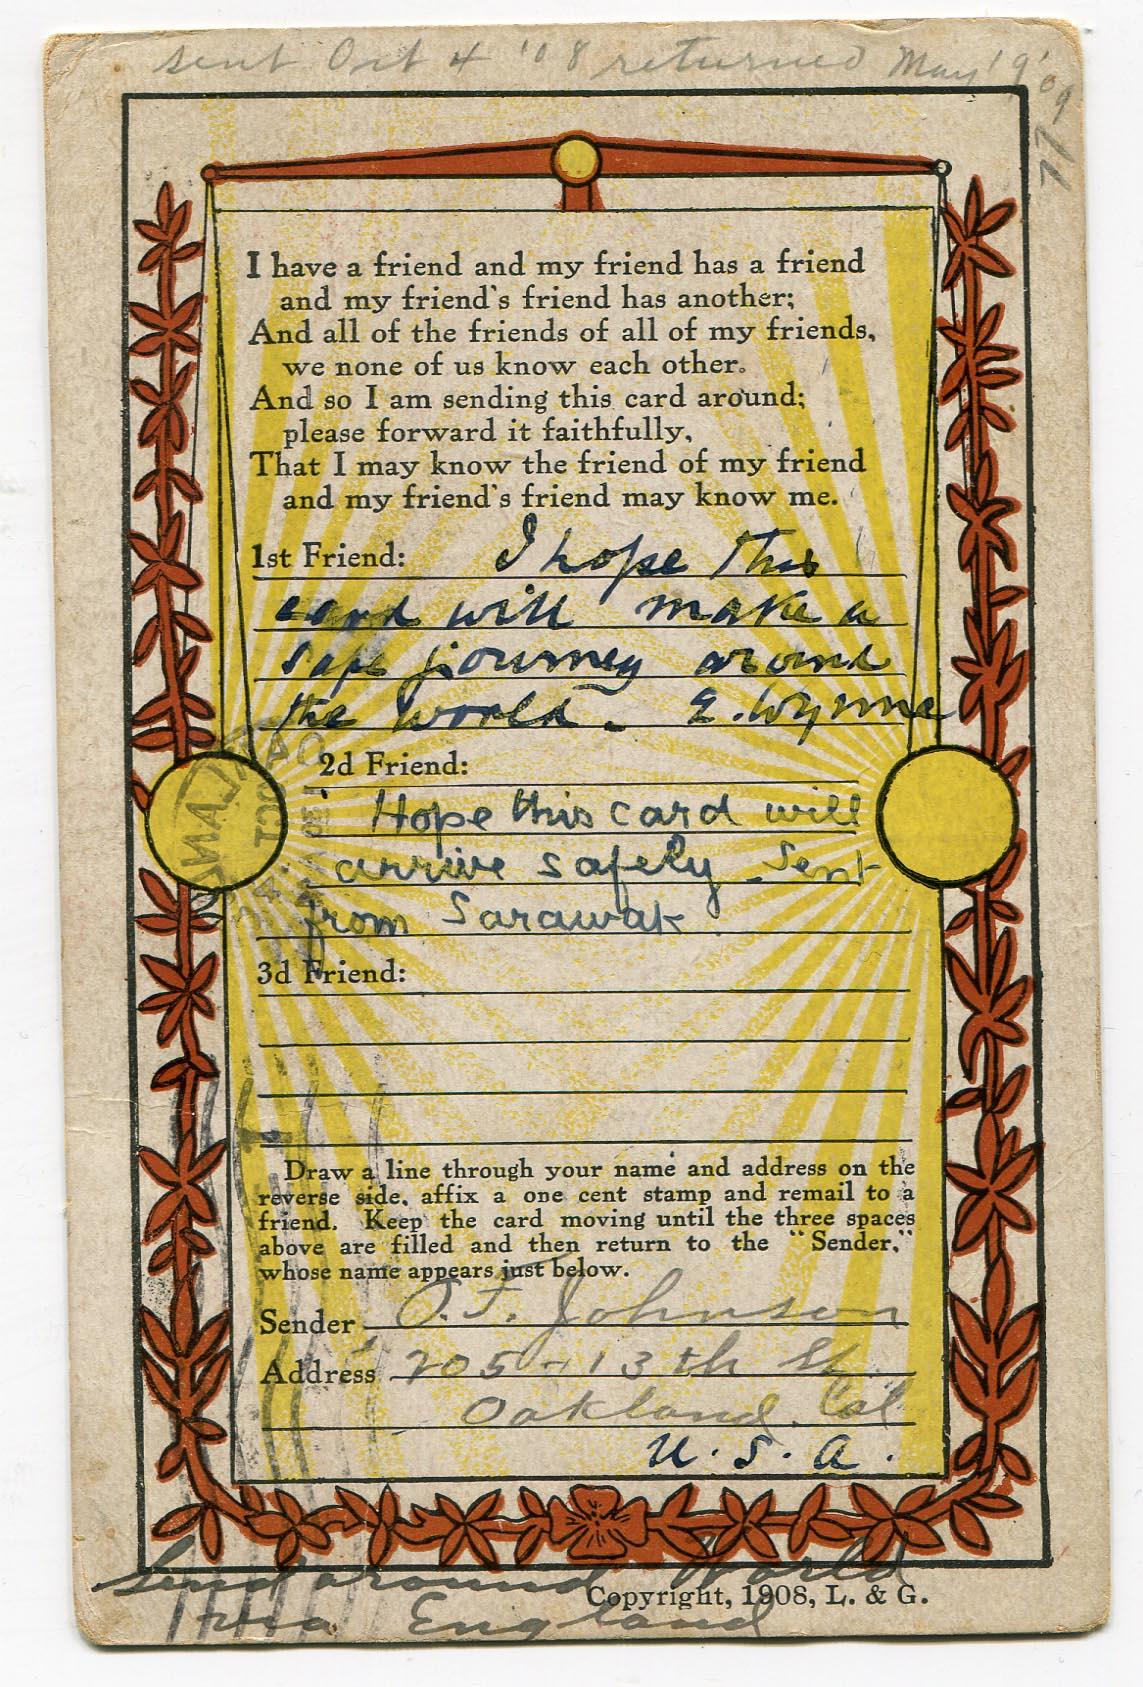 sent Oct 4 '08 returned May '9 '09
I have a friend and my friend has a friend
and my friend's friend has another;
And all of the friends of all of my friends,
we none of us know each other.
And so I am sending this card around;
please forward it faithfully,
That I may know the friend of my friend
and my friend's friend may know me.
1st Friend: I hope this
card will make a
safe journey around
the world. E. Wynne
2d Friend:
Hope this card will
arrive safely sent
from Sarawak
3d Friend:
Draw a line through your name and address on the
reverse side, affix a one cent stamp and remail to a
friend. Keep the card moving until the three spaces
above are filled and then return to the "Sender,"
whose name appears just below.
Sender O. F. Johnson
Address 205-13th St
Oakland, Cal
U. S. A.
Send around World
via England
Copyright, 1908, L. & G.